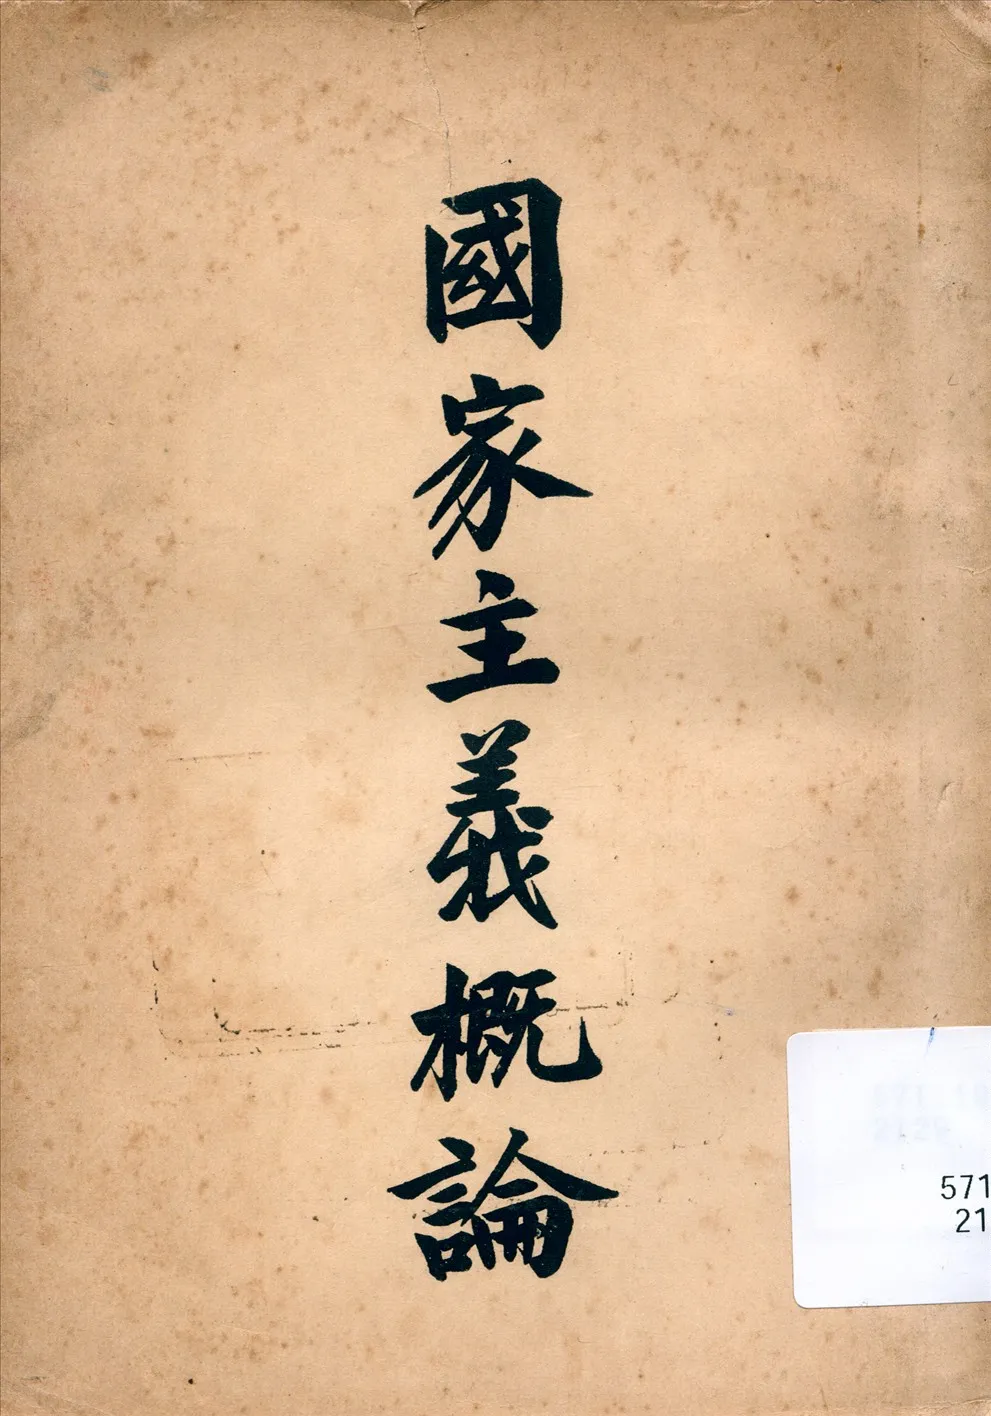 國家主義概論
571
21